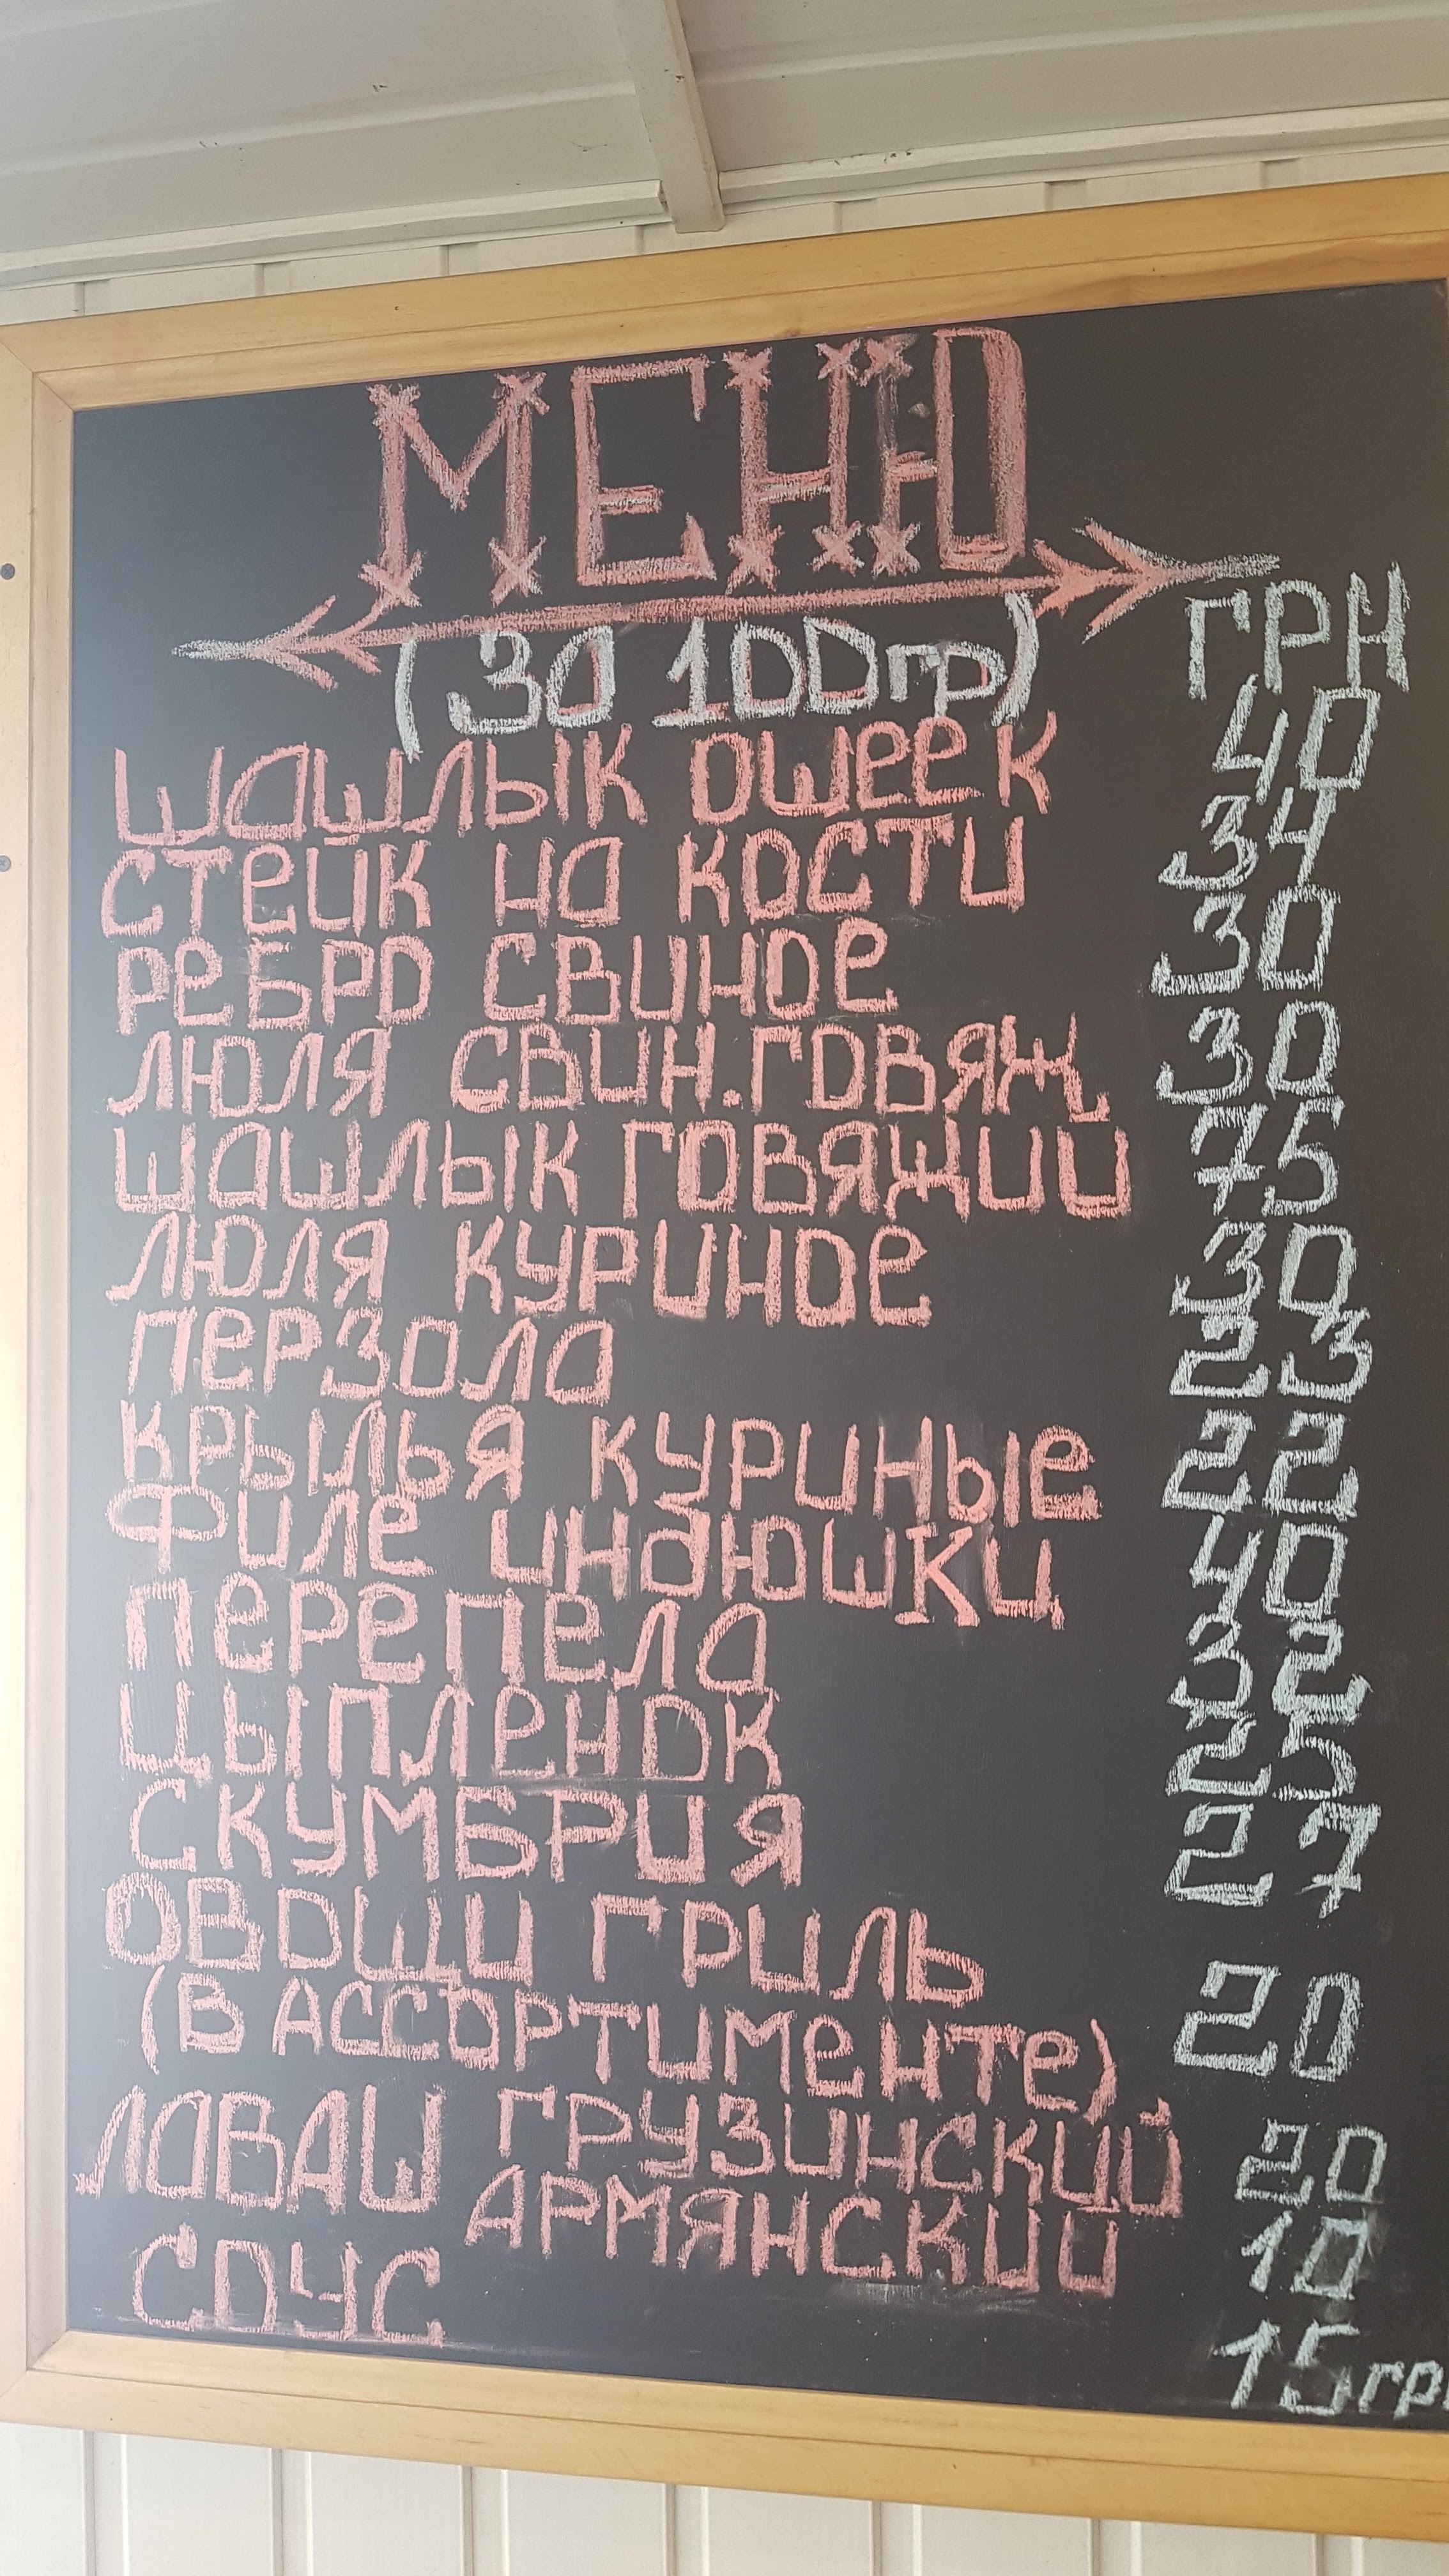 МЕНЮ
(За 100гр) ГРН
шашлык ошеек 40
стейк на кости 34
ребро свиное 30
люля свин.говяж 30
шашлык говяжий 75
люля куриное 30
перзола 23
крылья куриные 22
филе индюшки 40
перепела 32
цыпленок 25
скумбрия 27
овощи гриль
(в ассортименте) 20
лаваш грузинский 20
армянский 10
соус 15гр